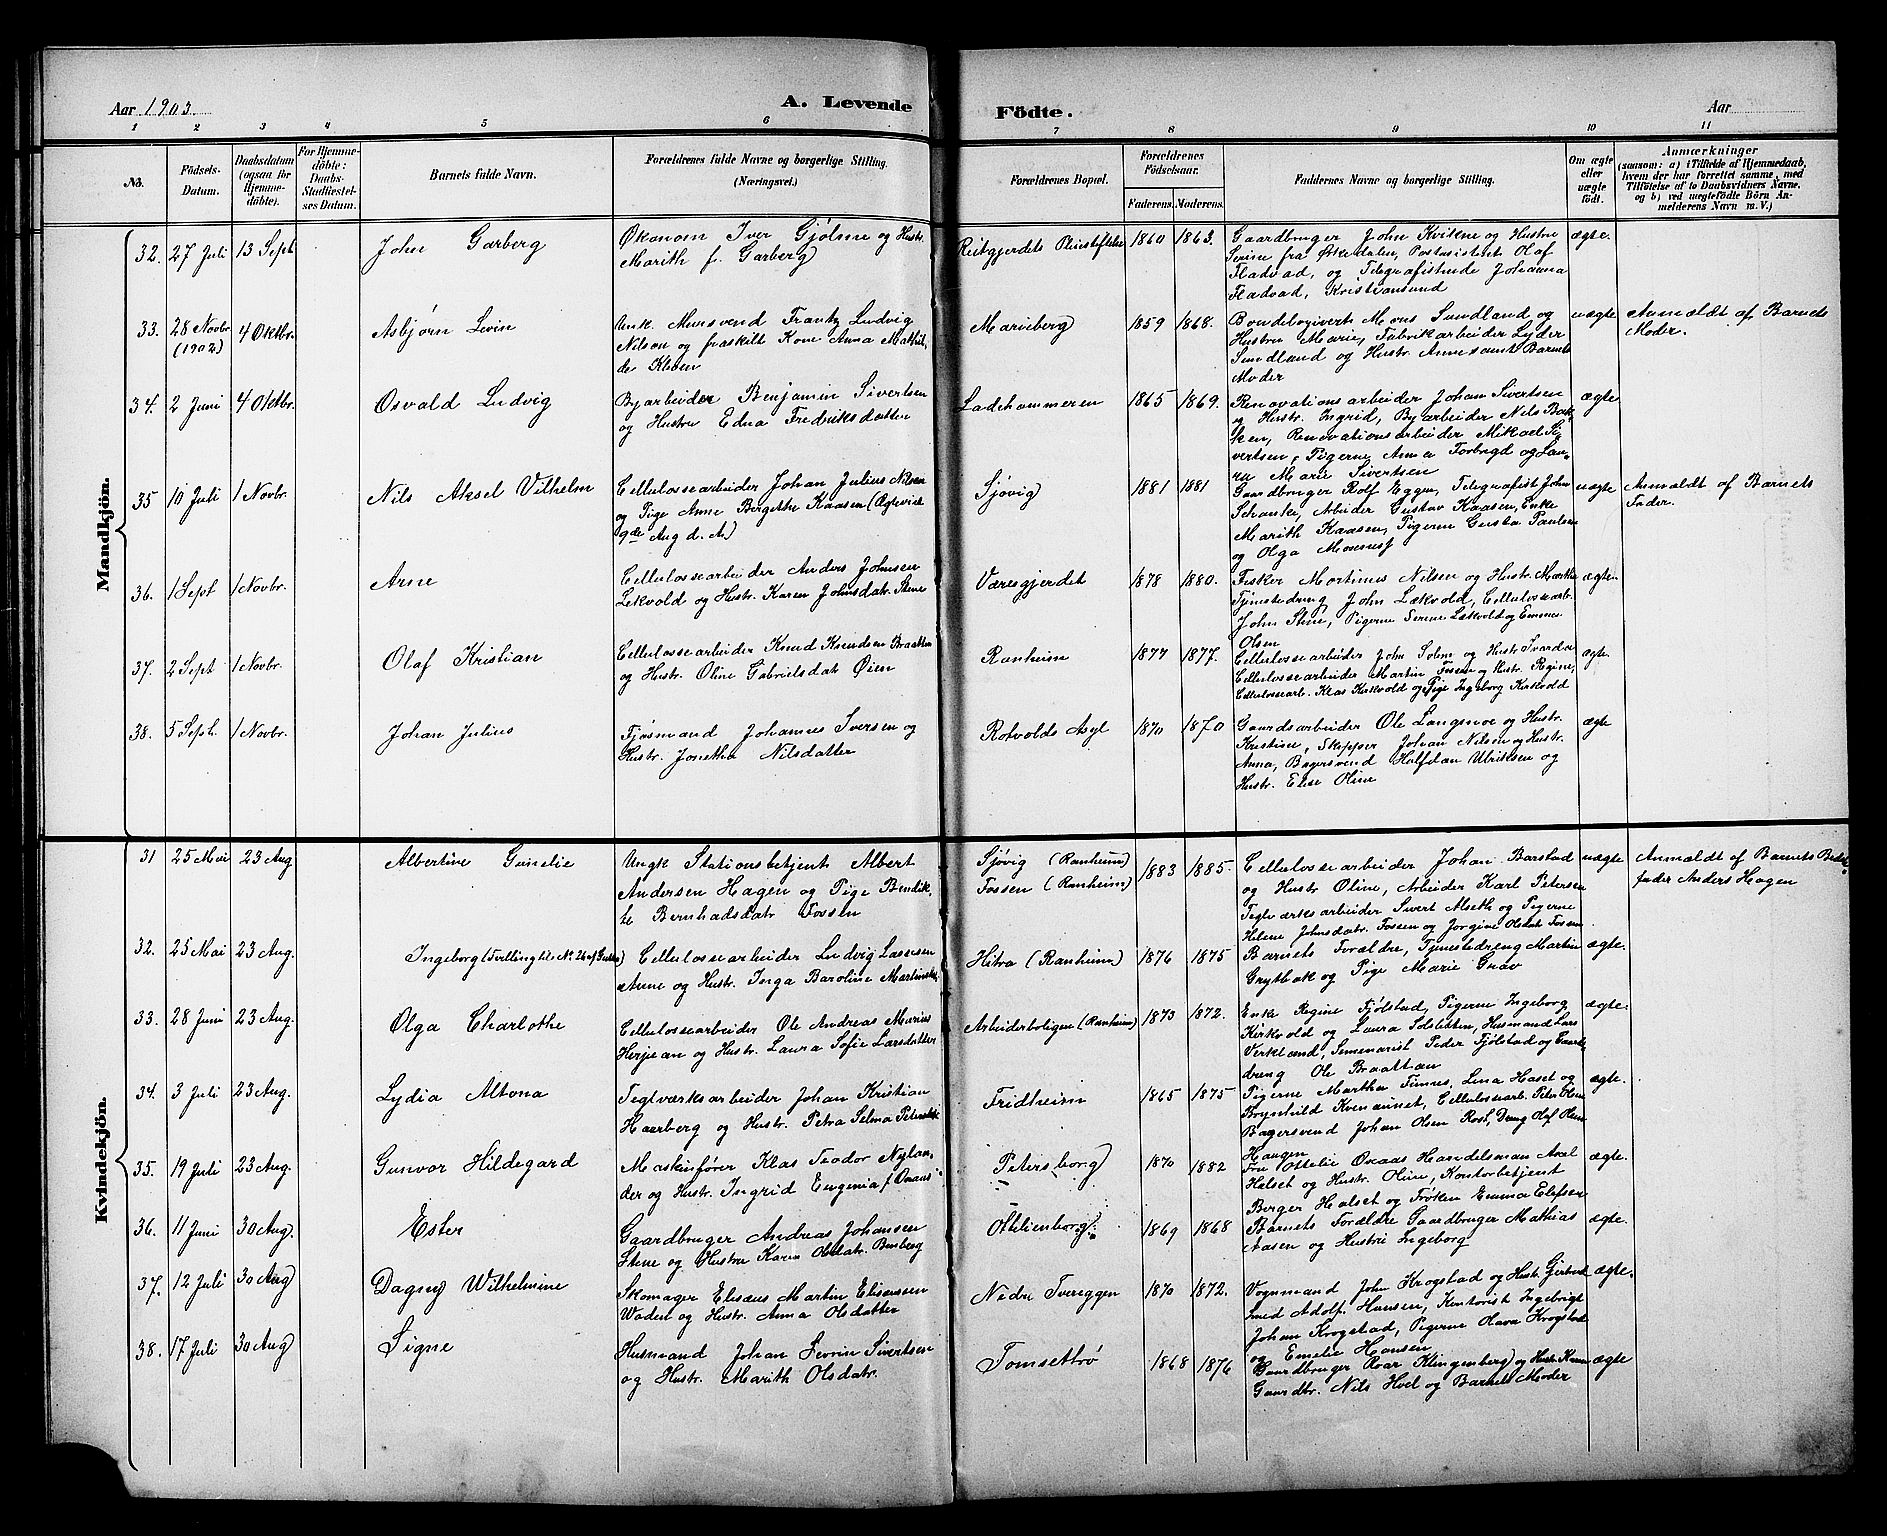 Aar 1903. A. Levende Födte. Aar
1 2 3 4 5 6 7 8 9 10 11
No. Födsels-Datum. Daabsdatum (ogsaa for Hjemme-döbte). For Hjemme-döbte: Daabs-Stadfæstel-ses Datum. Barnets fulde Navn. Forældrenes fulde Navne og borgerlige Stilling. (Næringsvei.) Forældrenes Bopæl. Forældrenes Födselsaar. Faderens. Moderens. Faddernes Navne og borgerlige Stilling. Om ægte eller uægte födt. Anmærkninger (saasom: a) i Tilfælde af Hjemmedaab, hvem der har forrettet samme, med Tilföielse af to Daabsvidners Navne, og b) ved uægtefödte Börn An-melderens Navn m. V.)
Mandkjön.
32. 27 Juli 13 Sept John Garberg
Økonom Iver Gjølme og Hustr.
Marith f. Garberg
Reitgjerdets Pleiestiftelse 1860 1863.
Gaardbruger John Kvikne og Hustru
Serine fra Ørkedalen, Postasistent Olaf
Fladvad, og Telegrafistinde Johanna
Fladvad, Kristiansund
ægte.
33. 28 Novbr. (1902) 4 Oktbr. Asbjørn Levin
Unk. Mursvend Frantz Ludvig
Nilsen og fraskilt Kone Anna Mathil-
de Kleven
Marieberg 1859 1868.
Mons Sundland og
Hustru Marie, Fabrikarbeider Lyder
Sundland og Hustr. Anne samt Barnets
Moder
uægte
Anmældt af Barnets
Moder.
34. 2 Juni 4 Oktbr. Osvald Ludvig
Byarbeider Benjamin Sivertsen
og Hustru Edna Fredriksdatter
Ladehammeren 1865 1869.
Renovationsarbeider Johan Sivertsen
og Hustr. Ingrid, Byarbeider Nils Bak-
ken, Renovationsarbeider Mikael Si-
vertsen, Pigerne Anna Forbregd og Lau-
ra Marie Sivertsen
ægte
35 10 Juli 1 Novbr. Nils Aksel Vilhelm
Cellulossearbeider Johan Julius Nilsen
og Pige Anne Bergithe Kaasen (Ægteviet
Aug d. A.)
Sjøvig 1881 1881
Gaardbruger Rolf Eggen, Telegrafist John
Schanke, Arbeider Gustav Kaasen, Enke
Marith Kaasen, Pigerne Gusta Paulsen
og Olga
uægte
Anmeldt af Barnets
Fader.
36. 1 Sept 1 Novbr. Arne
Cellulossearbeider Anders Johnsen
Lekvold og Hustr. Karen Johnsdatr. Stene
Væresgjerdet 1878 1880.
Fisker Mortinus Nilsen og Hustr. Martha
Tjenestedreng John Lækvold, Cellulossearb.
John Stene, Pigerne Serene Lækvold og Emma
Olsen
ægte.
37. 2 Sept 1 Novbr. Olaf Kristian
Cellulossearbeider Knud Knudsen Braatten
og Hustr. Oline Gabrielsdat Øien
Ranheim 1877 1877.
Cellulossearbeider John Solem og Hustr.
Cellulossearbeider Martin Fossen og Hustr. Regine,
Cellulossearb. Klas Kirkvold og Pige Ingeborg Kirkvold
ægte.
38. 5 Sept. 1 Novbr. Johan Julius
Fjøsmand Johannes Iversen og
Hustr. Jonetha Nilsdatter
Rotvolds Asyl 1870 1870
Gaardsarbeider Ole Langmoe og Hustr.
Kristine, Skipper Johan Nilsen og Hustr.
Anna, Bagersvend Halfdan Ulriksen og
Hustr. Elise Oline
ægte
Kvindekjön.
31 25 Mai 23 Aug Albertine Gunelie
Ungk Stationsbetjent Albert
Andersen Hagen og Pige Bendik-
te Bernhadsdatr Fossen
Sjøvig (Ranheim)
Fossen (Ranheim)
1883 1885.
Cellulossearbeider Johan Barstad
og Hustr Oline, Arbeider Karl Petersen
Teglverksarbeider Sivert Alseth og Pigerne
Helene Johnsdatr. Fossen og Jorgine Olsdatr Fossen.
uægte
Anmældt af Barnets
fader Anders Hagen
32. 25 Mai 23 Aug. Ingeborg (Tvilling til No. 26 af Gutter)
Cellulossearbeider Ludvig Lassesen
Aune og Hustr. Inga Baroline
Hitra (Ranheim) 1876 1875
Barnets Forældre, Tjenestedreng Martin
Grytbak og Pige Marie Grav
ægte.
33. 28 Juni 23 Aug. Olga Charlothe
Cellulossearbeider Ole Andreas Marius
Herjean og Hustr. Laura Sofie Larsdatter
Arbeiderboligen (Ranheim) 1873 1872.
Enke Regine Fjølstad, Pigerne Ingeborg
Kirkvold og Laura Solsletten, Husmand Lars
Verkland, Semenarist Peder Fjølstad og
dreng Ole Braattan
ægte.
34. 3 Juli 23 Aug. Lydia Altona
Teglverksarbeider Johan Kristian
Haarberg og Hustr. Petra Selma
Fridheim 1865 1875
Pigerne Martha Tinnes, Lina Haset og
Brynhild Kvenaunet, Cellulossearb. Peter Olsen
Bagersvend Johan Olsen Rost, Dreng Olaf Olsen
Haugen
ægte.
35. 19 Juli 23 Aug. Gunvor Hildegard
Maskinfører Klas Teodor Nylan-
der og Hustr. Ingrid Eugenia f. Oxaas
Petersborg 1870 1882
Fru Ottelie Oxaas Handelsman Axel
Halset og Hustr. Oline, Kontorbetjent
Berger Halset og Frøken Emma Elefsen
ægte.
36. 11 Juni 30 Aug. Ester
Gaardbruger Andreas Johansen
Stene og Hustru Karen Olsdatr.
Othilienborg. 1869 1868
Barnets Forældre Gaardbruger Mathias
Aasen og Hustru Ingeborg
ægte.
37. 12 Juli 30 Aug Dagny Wilhelmine
Skomager Elisæus Martin Elisensen
Woden og Hustr. Anna Olsdatter
Nedre Tvereggen 1870 1872.
Vognmand John Krogstad og Hustr. Gjertrud
Smed Adolf Hansen, Kontorist Ingebrigt
Johan Krogstad, Pigerne Olava Krogstad
og Emelie Hansen
ægte.
38. 17 Juli 30 Aug Signe
Husmand Johan Sevrin Sivertsen
og Hustr. Marith Olsdatr.
Tomsettrø 1868 1876
Gaardbruger Roar Klingenberg og Hustr. Karen
Gaardbr. Nils Hoel og Barnets Moder
ægte